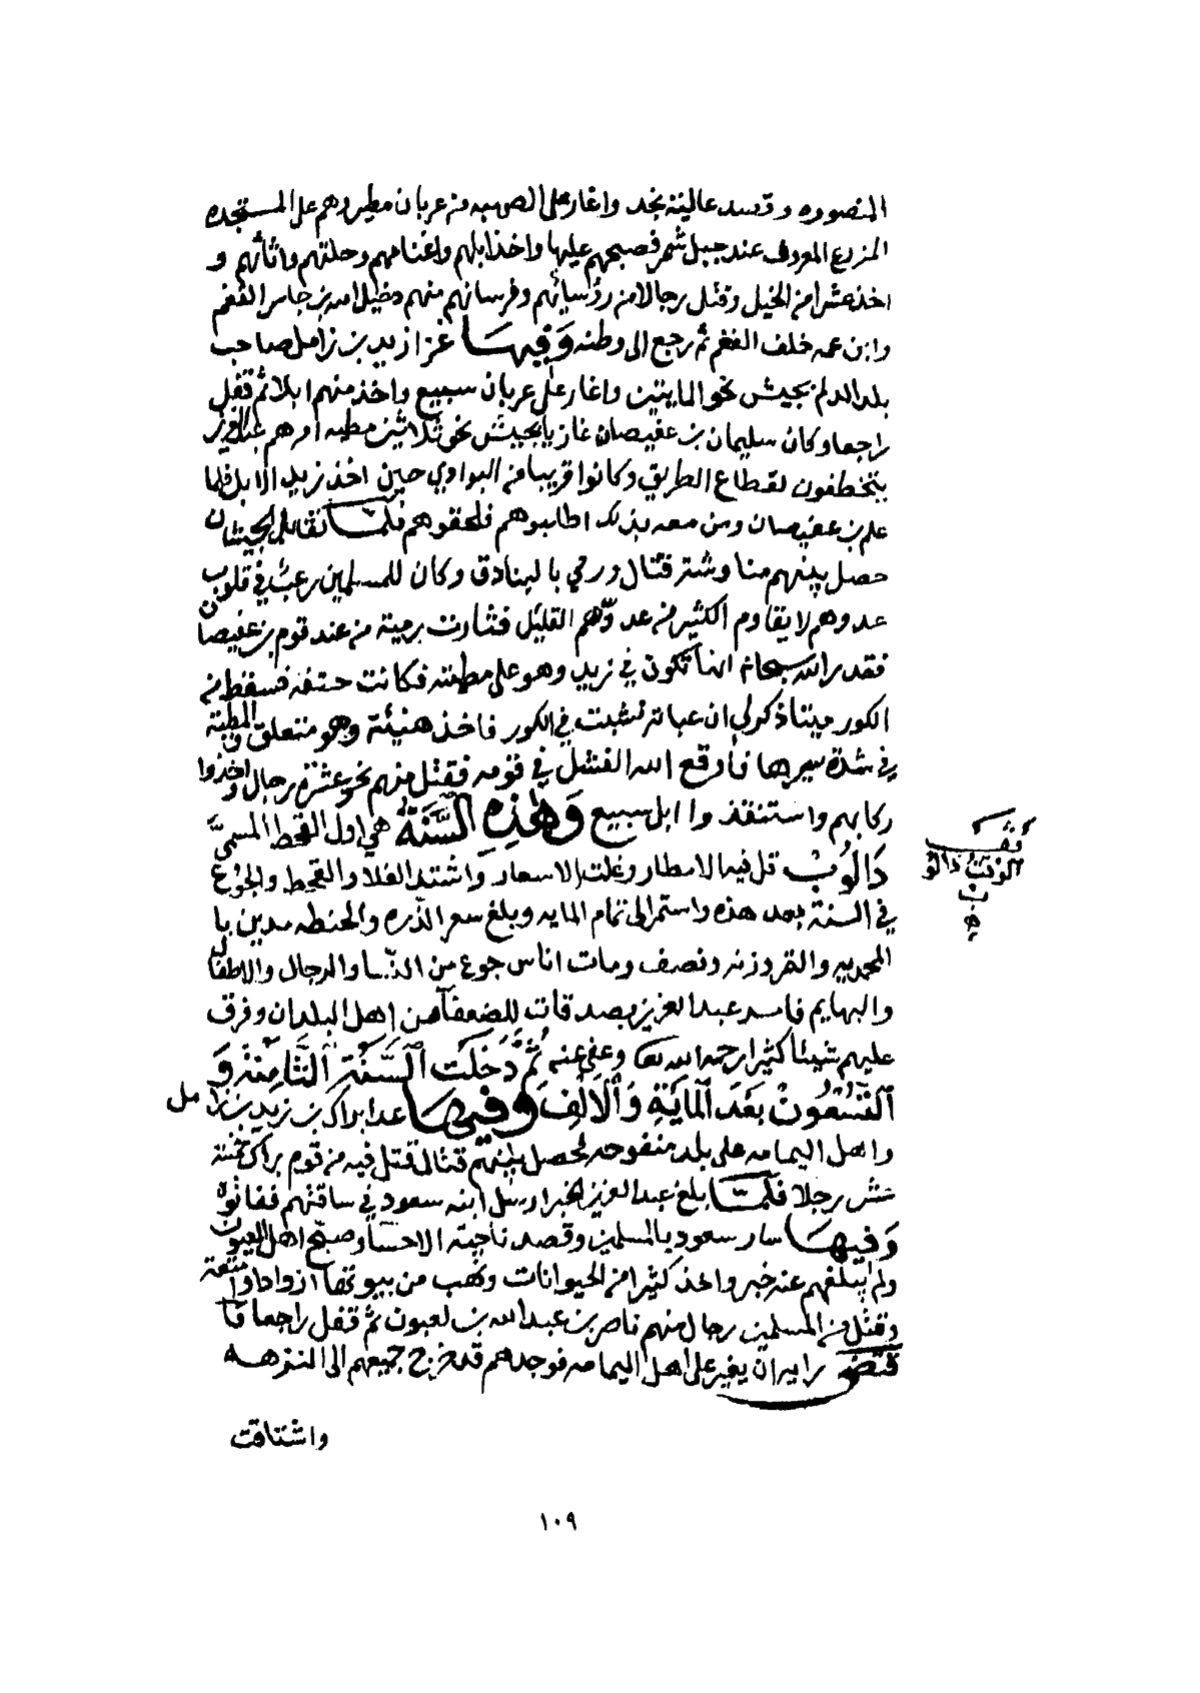 المنصوره وقصد عالية نجد واغار على الصهبه من عربان مطير وهم على المستجده
المزرع المعروف عند جبل شمر فصبحهم عليها واخذ ابلهم واغنامهم وحلتهم واثاثهم و
اخذ عشرا من الخيل وقتل رجالا من رؤسائهم وفرسانهم منهم دخيل الله بن جاسر الفغم
وابن عمه خلف الفغم ثم رجع الى وطنه وَفِيهَا غزا زيد بن زامل صاحب
بلد الدلم بجيش نحو المايتين واغار على عربان سبيع واخذ منهم ابلا ثم قفل
راجعا وكان سليمان بن عفيصان غازيا بجيش نحو ثلاثين مطيه امرهم عبدالعزيز
يتخطفون لقطاع الطريق وكانوا قريبا من البوادي حين اخذ زيد الابل فلما
علم بن عفيصان ومن معه بذلك اطلبوهم فلحقوهم فلمّا تقاتل الجيشان
حصل بينهم مناوشة قتال ورمي بالبنادق وكان للمسلمين رعب في قلوب
عدوهم لا يقاوم الكثير من عدوّهم القليل فثارت رمية من عند قوم بن عفيصان
فقدر الله سبحانه انها تكون في زيد وهو على مطيته فكانت حتفه فسقط من
الكور ميتا ذكر لي ان عباته نشبت في الكور فاخذ هنيئة وهو متعلق والمطية
في شدة سيرها فاوقع الله الفشل في قومه فقتل منهم نحو عشرة رجال واخذوا
ركابهم واستنقذوا ابل سبيع وَهٰذِهِ السَّنَةُ هي اول القحط المسمىّ
دَالُوبْ قل فيها الامطار وغلت الاسعار واشتد الغلا والقحط والجوع
في السنة بعد هذه واستمر الى تمام المايه وبلغ سعر الذره والحنطه مدين با
المحمديه والتمر وزنه ونصف ومات اناس جوع من النسا والرجال والاطفال
والبهايم فامد عبدالعزيز بصدقات للضعفآ من اهل البلدان وفرق
عليهم شيئا كثيرا رحمه الله تعا وعفى عنه ثُمَّ دَخَلَت اَلسَّنَة اَلثَّامِنَة وَ
اَلتِّسْعُونْ بَعْدَ اَلْمَايَةِ وَاَلْاَلْفِ وَفِيهَا عدا براك بن زيد بن زامل
واهل اليمامه على بلد منفوحه فحصل بينهم قتال قتل فيه من قوم براك خمسة
عشر رجلا فلمّا بلغ عبدالعزيز الخبر ارسل ابنه سعود في ساقتهم ففاتوه
وَفِيهَا سار سعود بالمسلمين وقصد ناحية الاحسآ وصبّح اهل العيون
ولم يبلغهم عنه خبر واخذ كثيرا من الحيوانات ونهب من بيوتها ازوادا وامتعة
وقتل من المسلمين رجال منهم ناصر بن عبدالله بن لعبون ثم قفل راجعا فا
قتضى رايه ان يغير على اهل اليمامه فوجدهم قد خرج جميعهم الى المنزهه
واشتاقت
قف
الوقت دالو
ب
ه
١٠٩